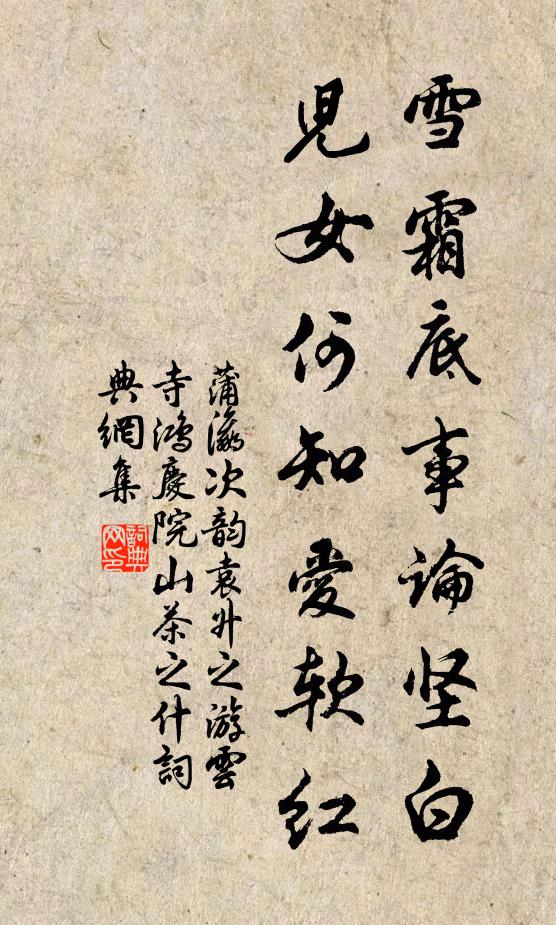 雪霜底事論坚白
児女何知愛軟红
蒲瀛次韵袁升之游雲
寺鴻慶院山茶之什詞
典網集
詞典
网印